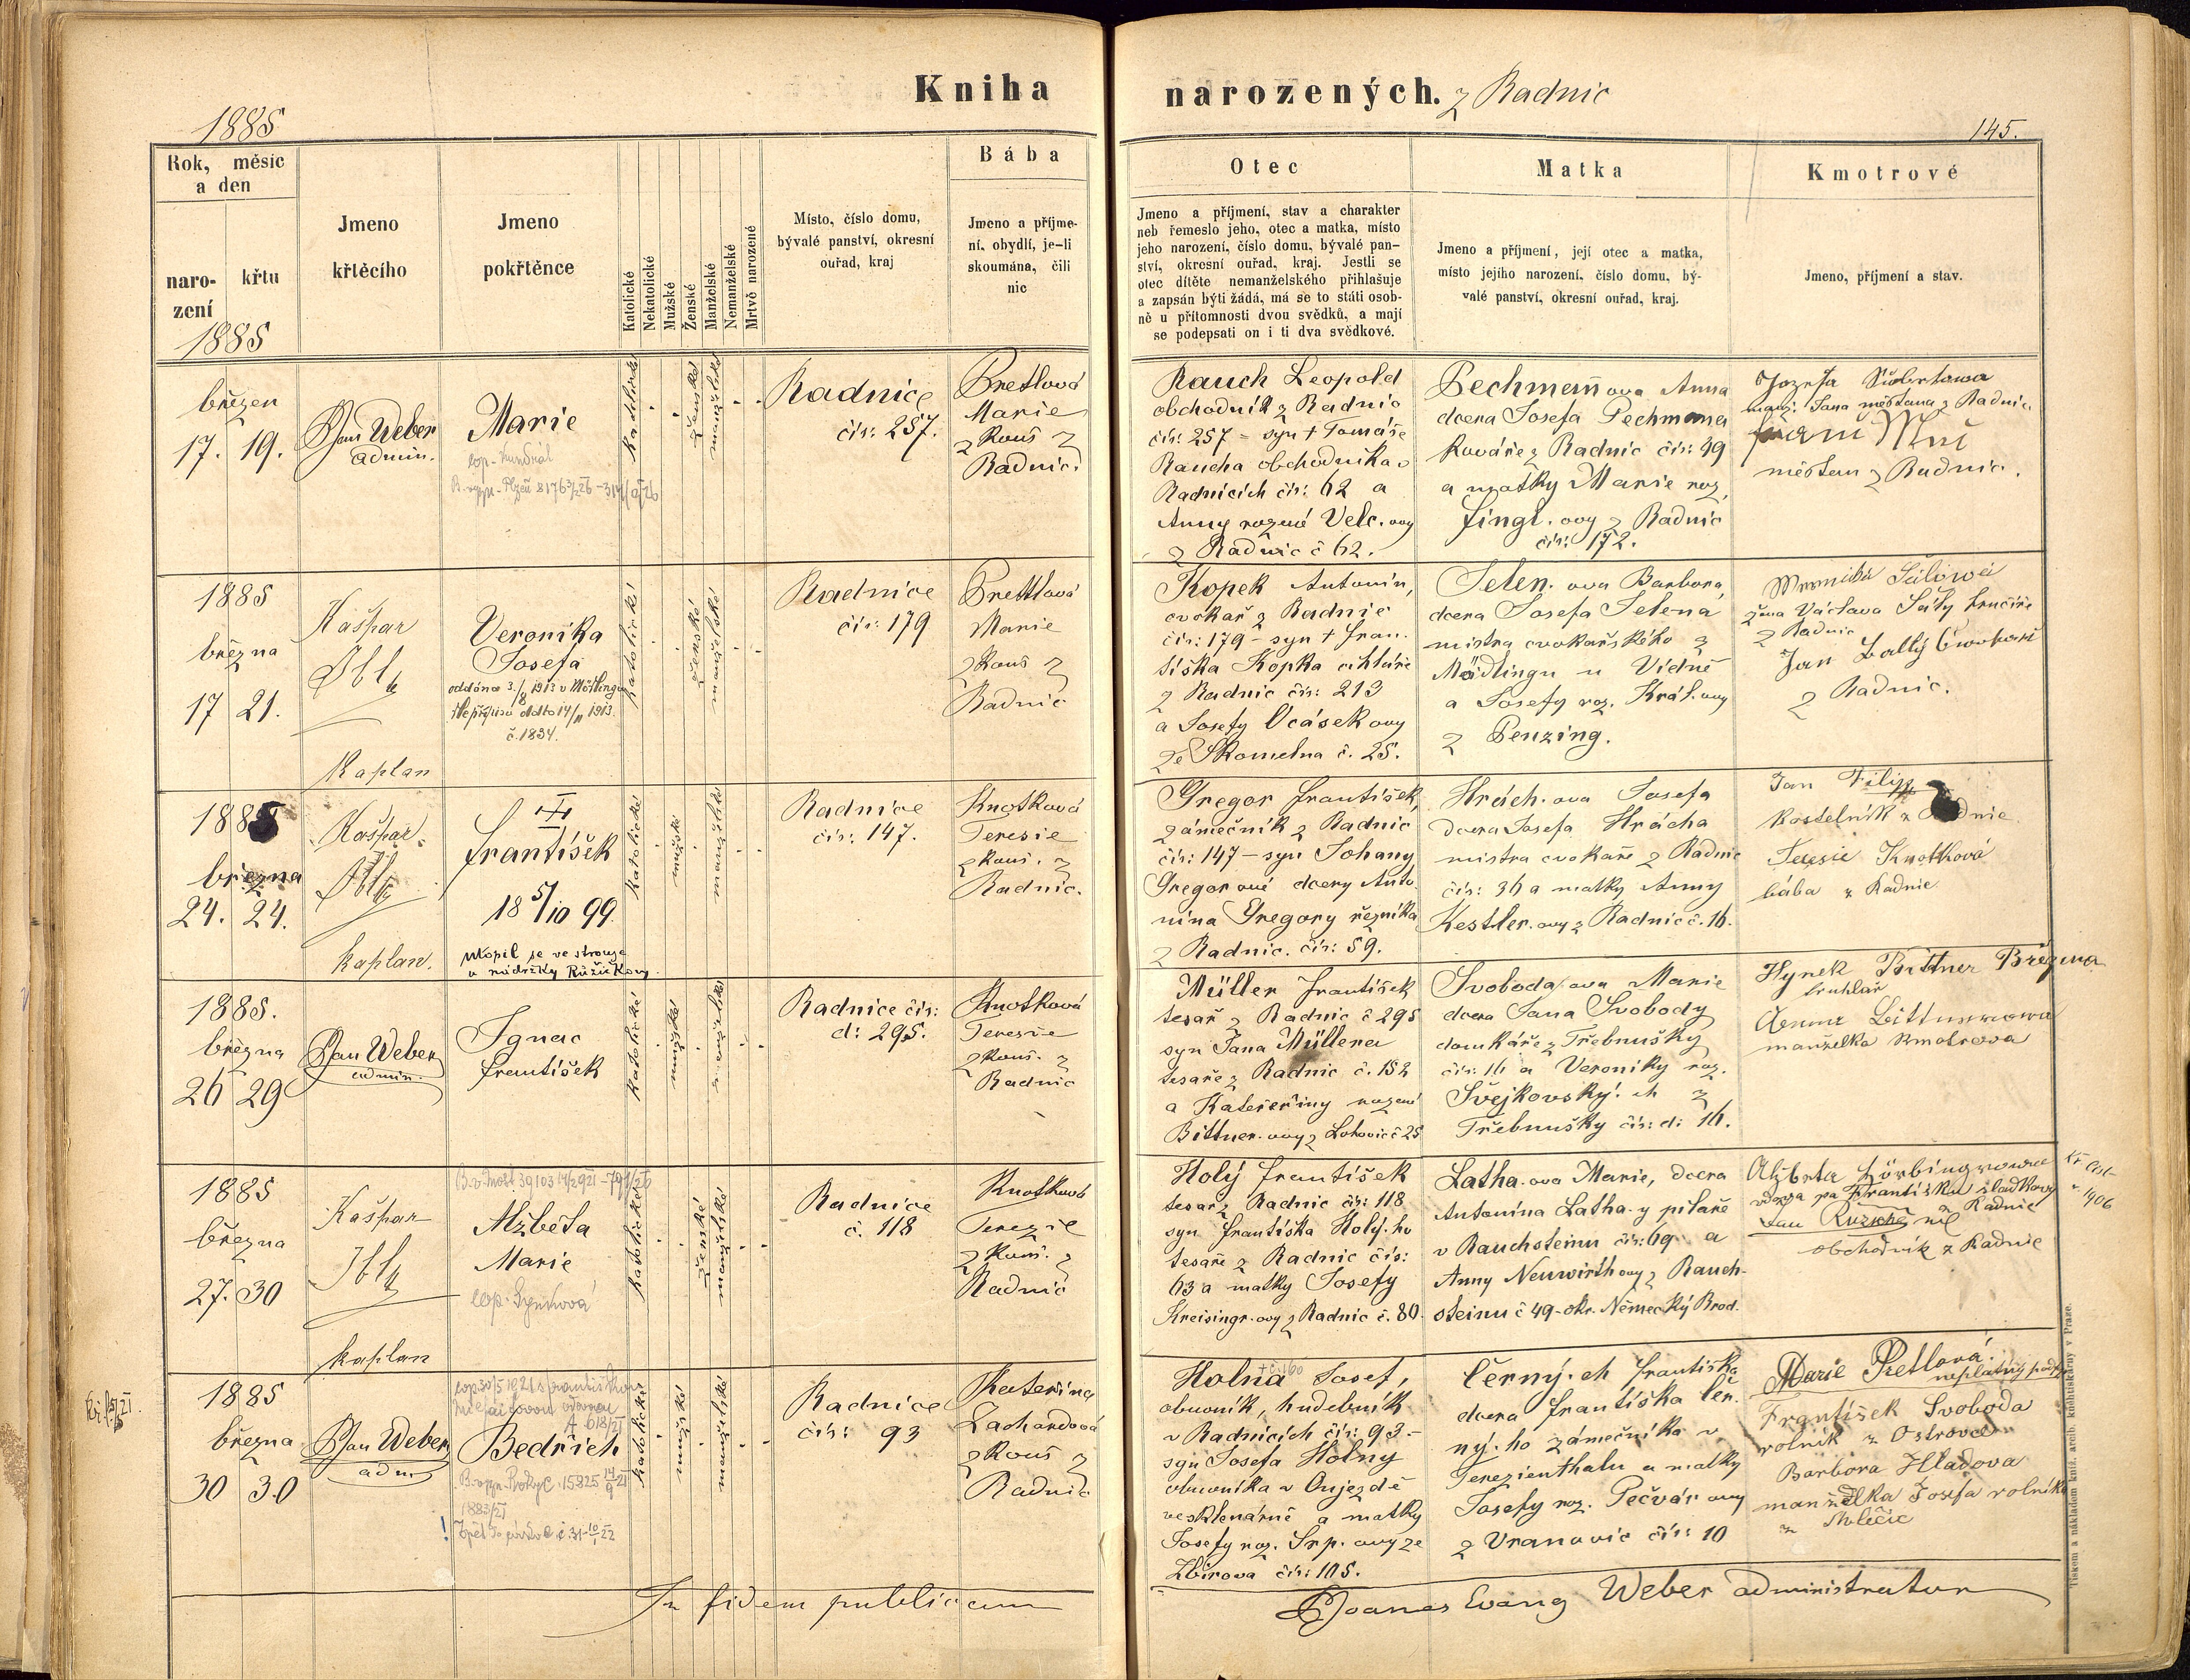 Kniha
narozených. z Radnic
1885
145.
Rok, měsíc
a den
naro-
zení
křtu
1885
Jmeno
křtěcího
Jmeno
pokřtěnce
Katolické
Nekatolické
Mužské
Ženské
Manželské
Nemanželské
Mrtvě narozené
Místo, číslo domu,
bývalé panství, okresní
ouřad, kraj
Bába
Jmeno a příjme-
ní, obydlí, je-li
skoumána, čili
nic
Otec
Jmeno a příjmení, stav a charakter
neb řemeslo jeho, otec a matka, místo
jeho narození, číslo domu, bývalé pan-
ství, okresní ouřad, kraj. Jestli se
otec dítěte nemanželského přihlašuje
a zapsán býti žádá, má se to státi osob-
ně u přítomnosti dvou svědků, a mají
se podepsati on i ti dva svědkové.
Matka
Jmeno a příjmení, její otec a matka,
místo jejího narození, číslo domu, bý-
valé panství, okresní ouřad, kraj.
Kmotrové
Jmeno, příjmení a stav.
březen
17. 19.
Jan Weber
admin.
Marie
katolické
ženské
manželské
Radnice
čís: 257.
Prettlová
Marie
z kouš z
Radnic.
Rauch Leopold
obchodník z Radnic
čís: 257 = syn † Tomáše
Raucha obchodníka v
Radnicích čís: 62 a
Anny rozené Velc. ovy
z Radnic č 62.
Pechmann ova Anna
dcera Josefa Pechmana
kováře z Radnic čís: 49
a matky Marie roz.
Fingl. ovy z Radnic
čís: 172.
manž. Jana měšťana z Radnic
měšťan z Radnic.
1885
března
17 21.
Kašpar
Ibl
Kaplan
Veronika
Josefa
oddána 3./8 1913 v Mödlingu
č. 1834.
katolické
ženské
manželské
Radnice
čís: 179
Prettlová
Marie
z kouš z
Radnic
Kopek Antonín,
cvokař z Radnic
čís: 179 – syn † Fran.
tiška Kopka cihláře
z Radnic čís: 213
a Josefy Ocásek ovy
ze Skomelna č. 25.
Jelen. ova Barbora,
dcera Josefa Jelena
mistra cvokařského z
Mödlingu u Vídně
a Josefy roz. Král. ovy
z Penzing.
žena Václava
z Radnic
Jan
z Radnic.
1885
března
24. 24.
Kašpar
Ibl
kaplan.
František
18 5/10 99
utopil se ve strouze
u nádržky Růžičkovy.
katolické
mužské
manželské
Radnice
čís: 147.
Knotková
Teresie
z kouš. z
Radnic.
Gregor František,
zámečník z Radnic
čís: 147 – syn Johany
Gregor ové dcery Anto.
nína Gregory řezníka
z Radnic. čís: 59.
Hrách. ova Josefa
dcera Josefa Hrácha
mistra cvokaře z Radnic
čís: 36 a matky Anny
Kestler. ovy z Radnic č. 16.
Jan Filip
kostelník z Radnic
Teresie Knotková
bába z Radnic
1885.
března
26 29
Jan Weber
admin.
Ignac
František
katolické
mužské
manželské
Radnice čís:
d: 295.
Knotková
Teresie
z kouš. z
Radnic
Müller František
tesař z Radnic č 295
syn Jana Müllera
tesaře z Radnic č. 152
a Kateřiny rozené
Bittner. ovy z Lohovic č 25
Svoboda ova Marie
dcera Jana Svobody
domkáře z Třebnušky
čís: 16 a Veroniky roz.
Švejkovský. ch z
Třebnušky čís: d: 16.
Hynek Bittner Březina
truhlář
manželka kmotrova
1885
března
27. 30
Kašpar
Ibl
kaplan
Alžběta
Marie
katolické
ženské
manželské
Radnice
č. 118
Knotková
Terezie
z kouš. z
Radnic
Holý František
tesař z Radnic čís: 118
syn Františka Holý. ho
tesaře z Radnic čís:
63 a matky Josefy
Kreisingr. ovy z Radnic č. 80.
Latha. ova Marie, dcera
Antonína Latha. y pilaře
v Rauchsteinu čís: 69 a
Anny Neuwirth ovy z Rauch-
steinu č 49 – okr. Německý Brod.
Alžběta
Radnic
Jan
obchodník z Radnic
1906
1885
března
30 30
Jan Weber
adm
Bedřich
katolické
mužské
manželské
Radnice
čís: 93
Kateřina
Zachardová
z kouš z
Radnic
Holna Josef,
obuvník, hudebník
v Radnicích čís: 93. –
syn Josefa Holny
obuvníka v Oujezdě
a matky
Josefy roz. Srp. ovy ze
Zbirova čís: 105.
Černý. ch Františka
dcera Františka Čer.
ný. ho zámečníka v
Terezienthalu a matky
Josefy roz. Pečvár ovy
z Vranovic čís: 10
Marie Pretlová.
neplatný podpis
František Svoboda
rolník z Ostrovce
Barbora Hladova
manželka Josefa rolníka
In fidem publicam
Joanes Evang Weber administrator
Tiskem a nákladem kníž. arcib. knihtiskárny v Praze.